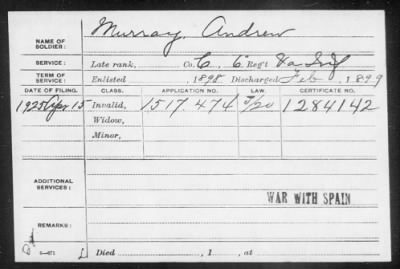 NAME OF SOLDIER: Murray, Andrew
SERVICE: Late rank, Co. C, 6 Reg't Va Inf
TERM OF SERVICE: Enlisted , 1898 Discharged Feb , 1899
DATE OF FILING. CLASS. APPLICATION NO. LAW. CERTIFICATE NO.
1925 Apr 15 Invalid, 1517.474 5/20 1284142
Widow,
Minor,
ADDITIONAL SERVICES:
WAR WITH SPAIN
REMARKS:
Died , 1 , at